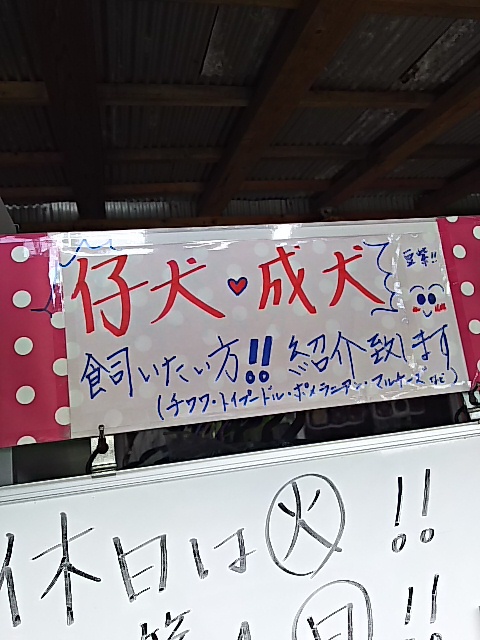 仔犬♥成犬
飼いたい方!! 紹介致します
(チワワ・トイプードル・ポメラニアン・マルチーズなど)
休日は㊋!!
第1